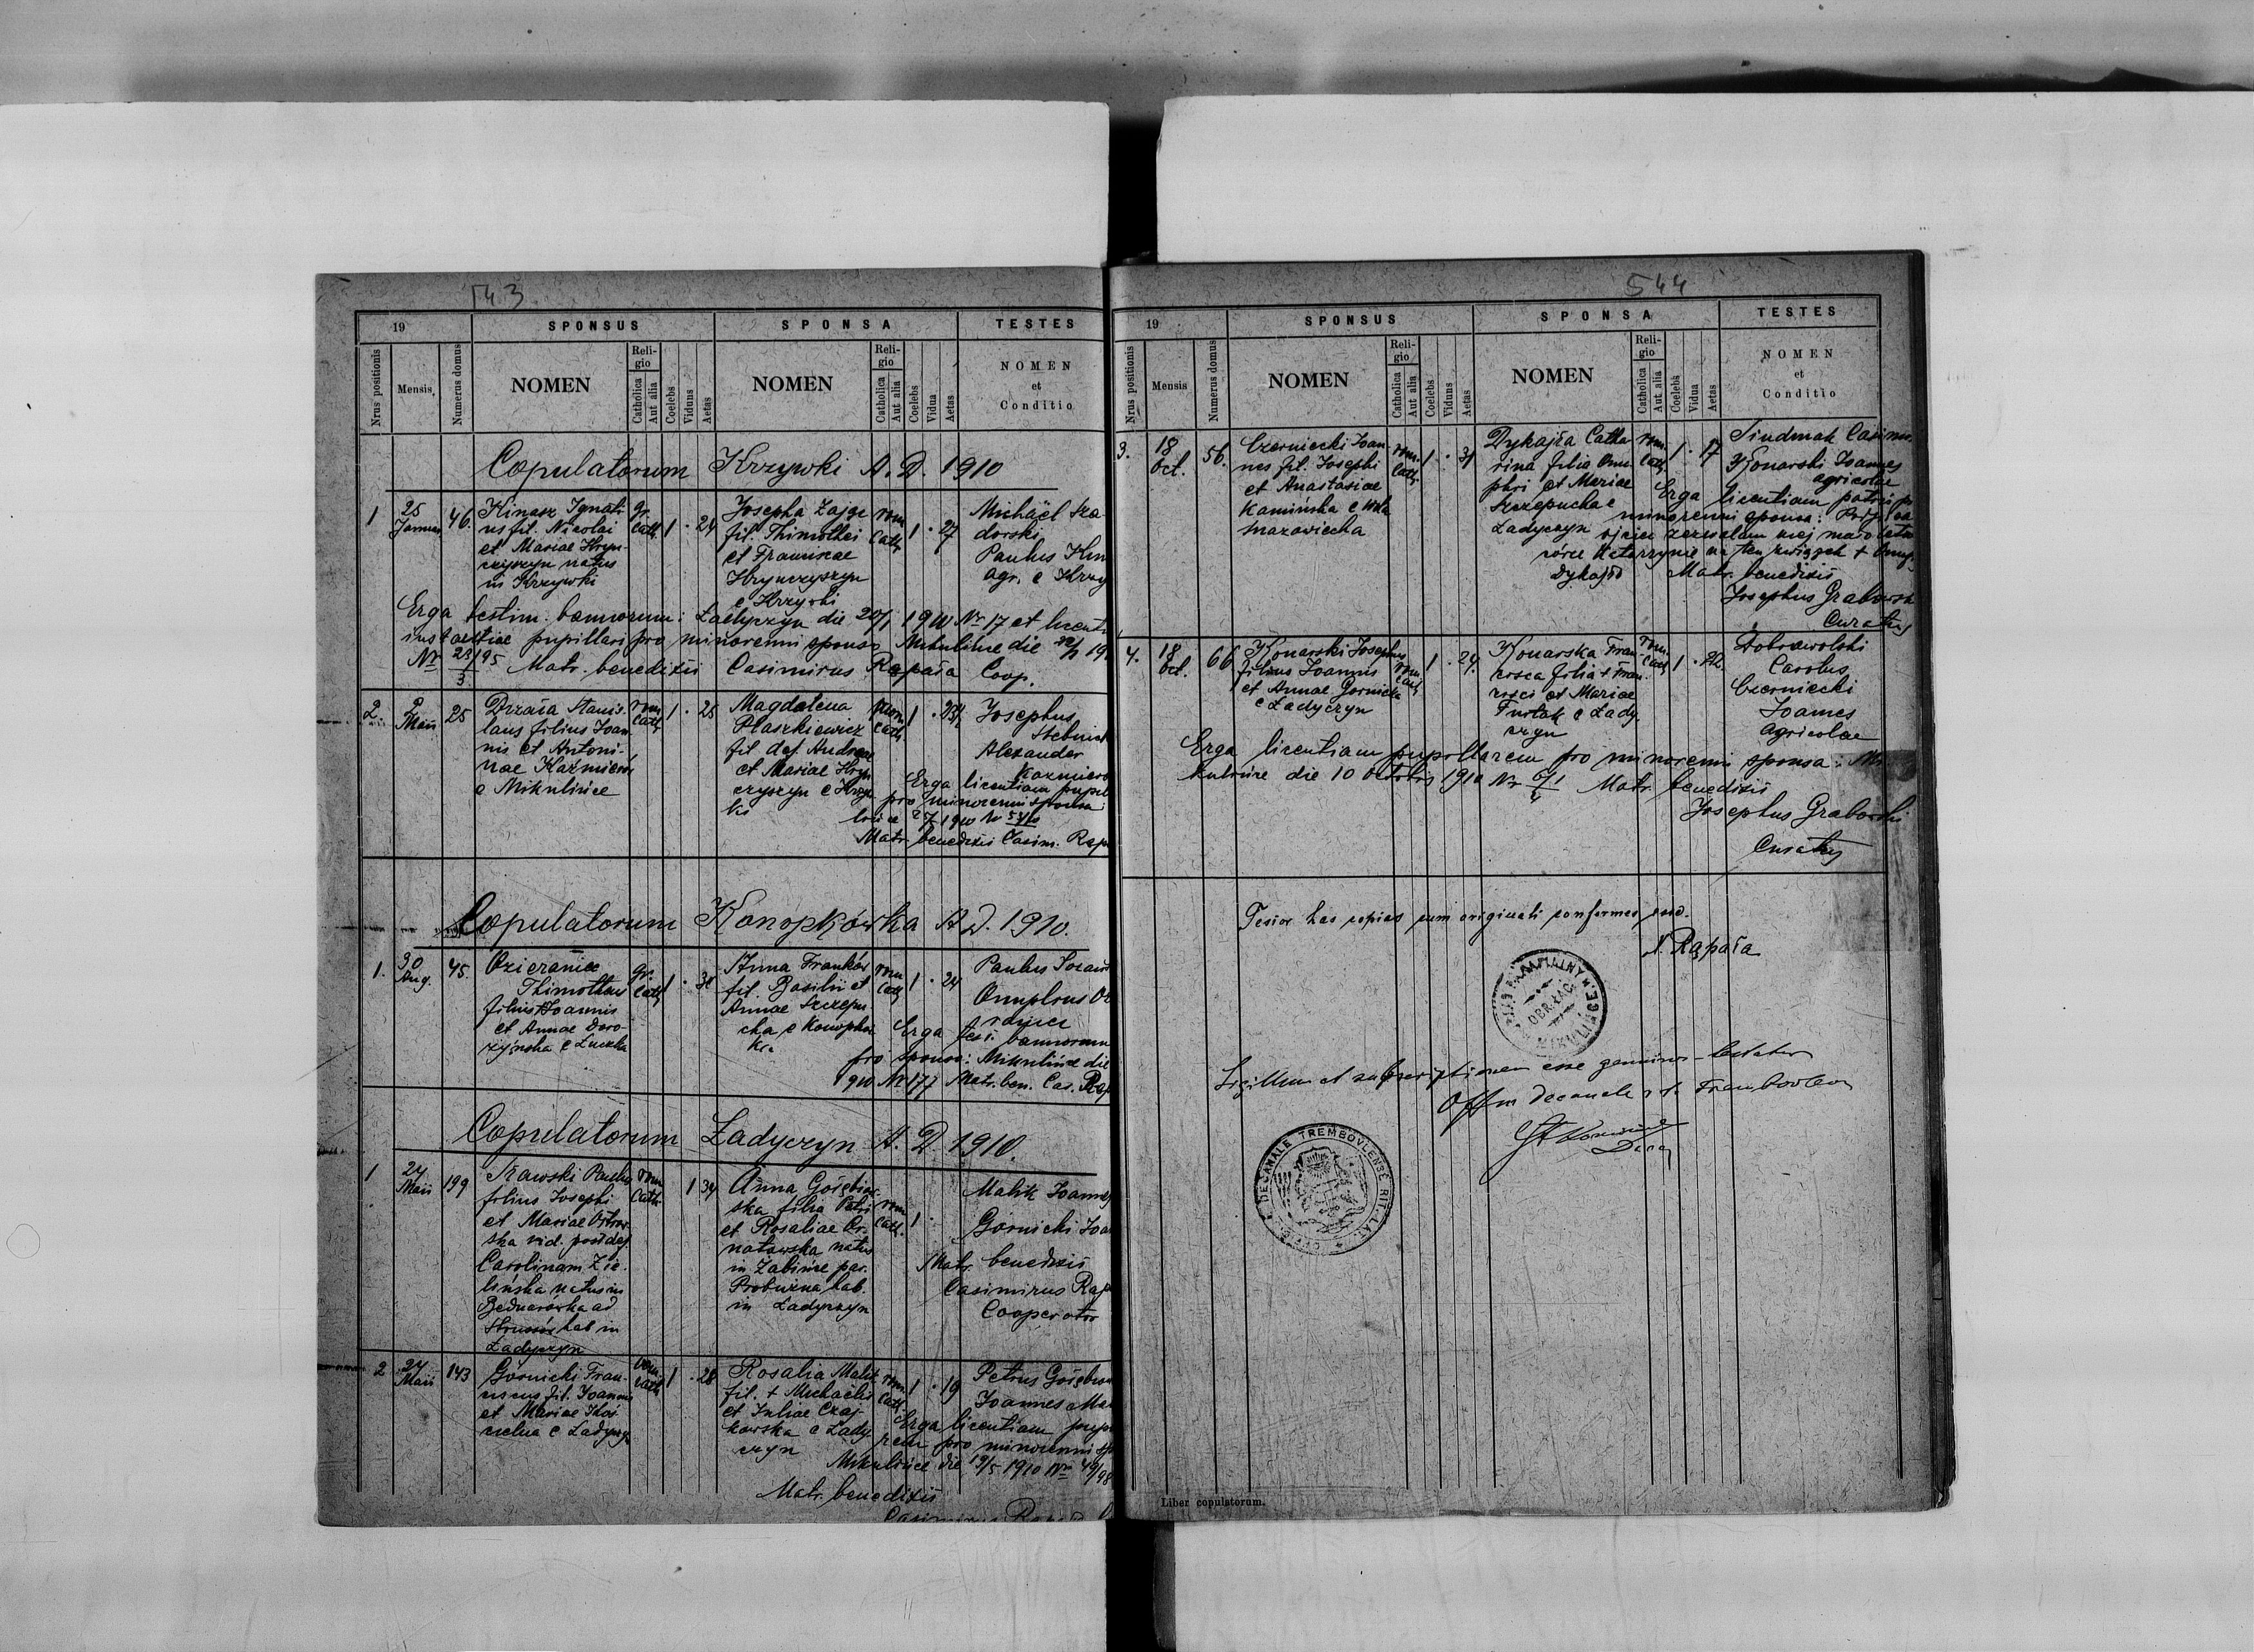 543
19
SPONSUS
SPONSA
TESTES
Nrus positionis
Mensis
Numerus domus
NOMEN
Religio
Catholica
Aut alia
Coelebs
Viduus
Aetas
NOMEN
Religio
Catholica
Aut alia
Coelebs
Vidua
Aetas
NOMEN
et
Conditio
Copulatorum Krzywki A. D. 1910
1
25
46.
Kinasz Ignati
us fil. Nicolai
et Mariae Hryn
czyszyn natus
in Krzywki
gr.
cath
1 . 24
Josepha Zając
fil. Thimothei
et Franciscae
Hrynczyszyn
e Krzywki
rom
cath
1 . 27
Michael
dorski
Paulus
agr. e Krzy
Erga testim. bannorum: Ładyczyn die 20/1 1910 Nr 17 et
instantiae pupillari pro minorenni sponso Mikulińce die
Nr 23/3 195 Matr. benedixit Casimirus Rąpała Coop.
2.
2
Maii
25
Drzała Stanis
laus filius Joan
nis et Antoni-
nae Kaźmierów
e Mikulińce
rom
cath
1 . 25
Magdalena
Płaszkiewicz
fil def. Andreae
et Mariae Hryn
czyszyn e Krzyw
ki
rom
cath
1 .
Josephus
Alexander
Erga licentiam pupil
pro minorenni sponsa:
1910
Matr. benedixit Casim. Rąp
Copulatorum Konopkówka A. D. 1910.
1.
30
Aug.
45.
Thimotheus
filius Joannis
et Annae Doro
żyńska e Łuczka
gr.
cath
1 .
Anna Franków
fil. Basilii et
Annae Szczepu
cha e Konopków
ka
rom
cath
1 . 24
Paulus
Erga test. bannorum
pro sponso: Mikulińce die
910 Nr 177 Matr. ben. Cas. Rąp
Copulatorum Ładyczyn A. D. 1910.
1
24
Maii
199
Paulus
filius Josephi
et Mariae Ostrow
ska vid. post def.
Carolinam Zie-
lińska natus in
Bednarówka ad
hab in
Ładyczyn
rom
cath
1 34
Anna Gołębiow-
ska filia Petri
et Rosaliae
natowska natus
in Żabińce par.
Probużna hab.
in Ładyczyn
rom
cath.
1 .
Malik Joannes
Górnicki Joa
Matr. benedixit
Casimirus Rąp
Cooperator
2
24
Maii
143
Górnicki Fran-
ciscus fil. Joannis
et Mariae Koś
cielna e Ładyczyn
rom.
cath
1 . 28
Rosalia Malik
fil. + Michaelis
et Juliae Czaj-
kowska e Łady
czyn
rom.
cath
1 . 19
Petrus Gołębiow
Joannes Ma
Erga licentiam pup
rem pro minorenni sp
Mikulińce die 19/5 1910 Nr 49/98
Matr. benedixit
544
19
SPONSUS
SPONSA
TESTES
Nrus positionis
Mensis
Numerus domus
NOMEN
Religio
Catholica
Aut alia
Coelebs
Viduus
Aetas
NOMEN
Religio
Catholica
Aut alia
Coelebs
Vidua
Aetas
NOMEN
et
Conditio
3.
18
Oct.
56.
Czerniecki Joan
nes fil. Josephi
et Anastasiae
Kamińska e Wola
mazowiecka
rom.
cath
1 . 31
Dykajło Catha
rina filia Onu
phri et Mariae
Szczepucha e
Ładyczyn
rom.
cath
1 . 17
Sindmak Casimir.
Konarski Joannes
agricolae
Erga licentiam patris
minorenni sponsa:
ojciec zezwalam mej małoletn
córce Katarzynie na ten związek +
Dykajło
Matr. benedixit
Josephus Grabowski
Curatus
4.
18
Oct.
66
Konarski Josephus
filius Joannis
et Annae Gornicka
e Ładyczyn
rom
cath
1 . 24.
Konarska Fran-
cisca filia + Fran
cisci et Mariae
Furtak e Łady
czyn
rom.
cath
1 .
Dobrowolski
Carolus
Czerniecki
Joannes
Agricolae
Erga licentiam pupillarem pro minorenni sponsa: Mi
kulińce die 10 Octobris 1910 Matr. benedixit
Josephus Grabowski
Curatus
Testor has copias cum originali conformes esse.
Rąpała
OBR. ŁAC.
Sigillum et subscriptionem esse genuinas testatur
Offm Decanale Trembovlen
Decan
DECANALE TREMBOVLENSE RIT. LAT.
Liber copulatorum.